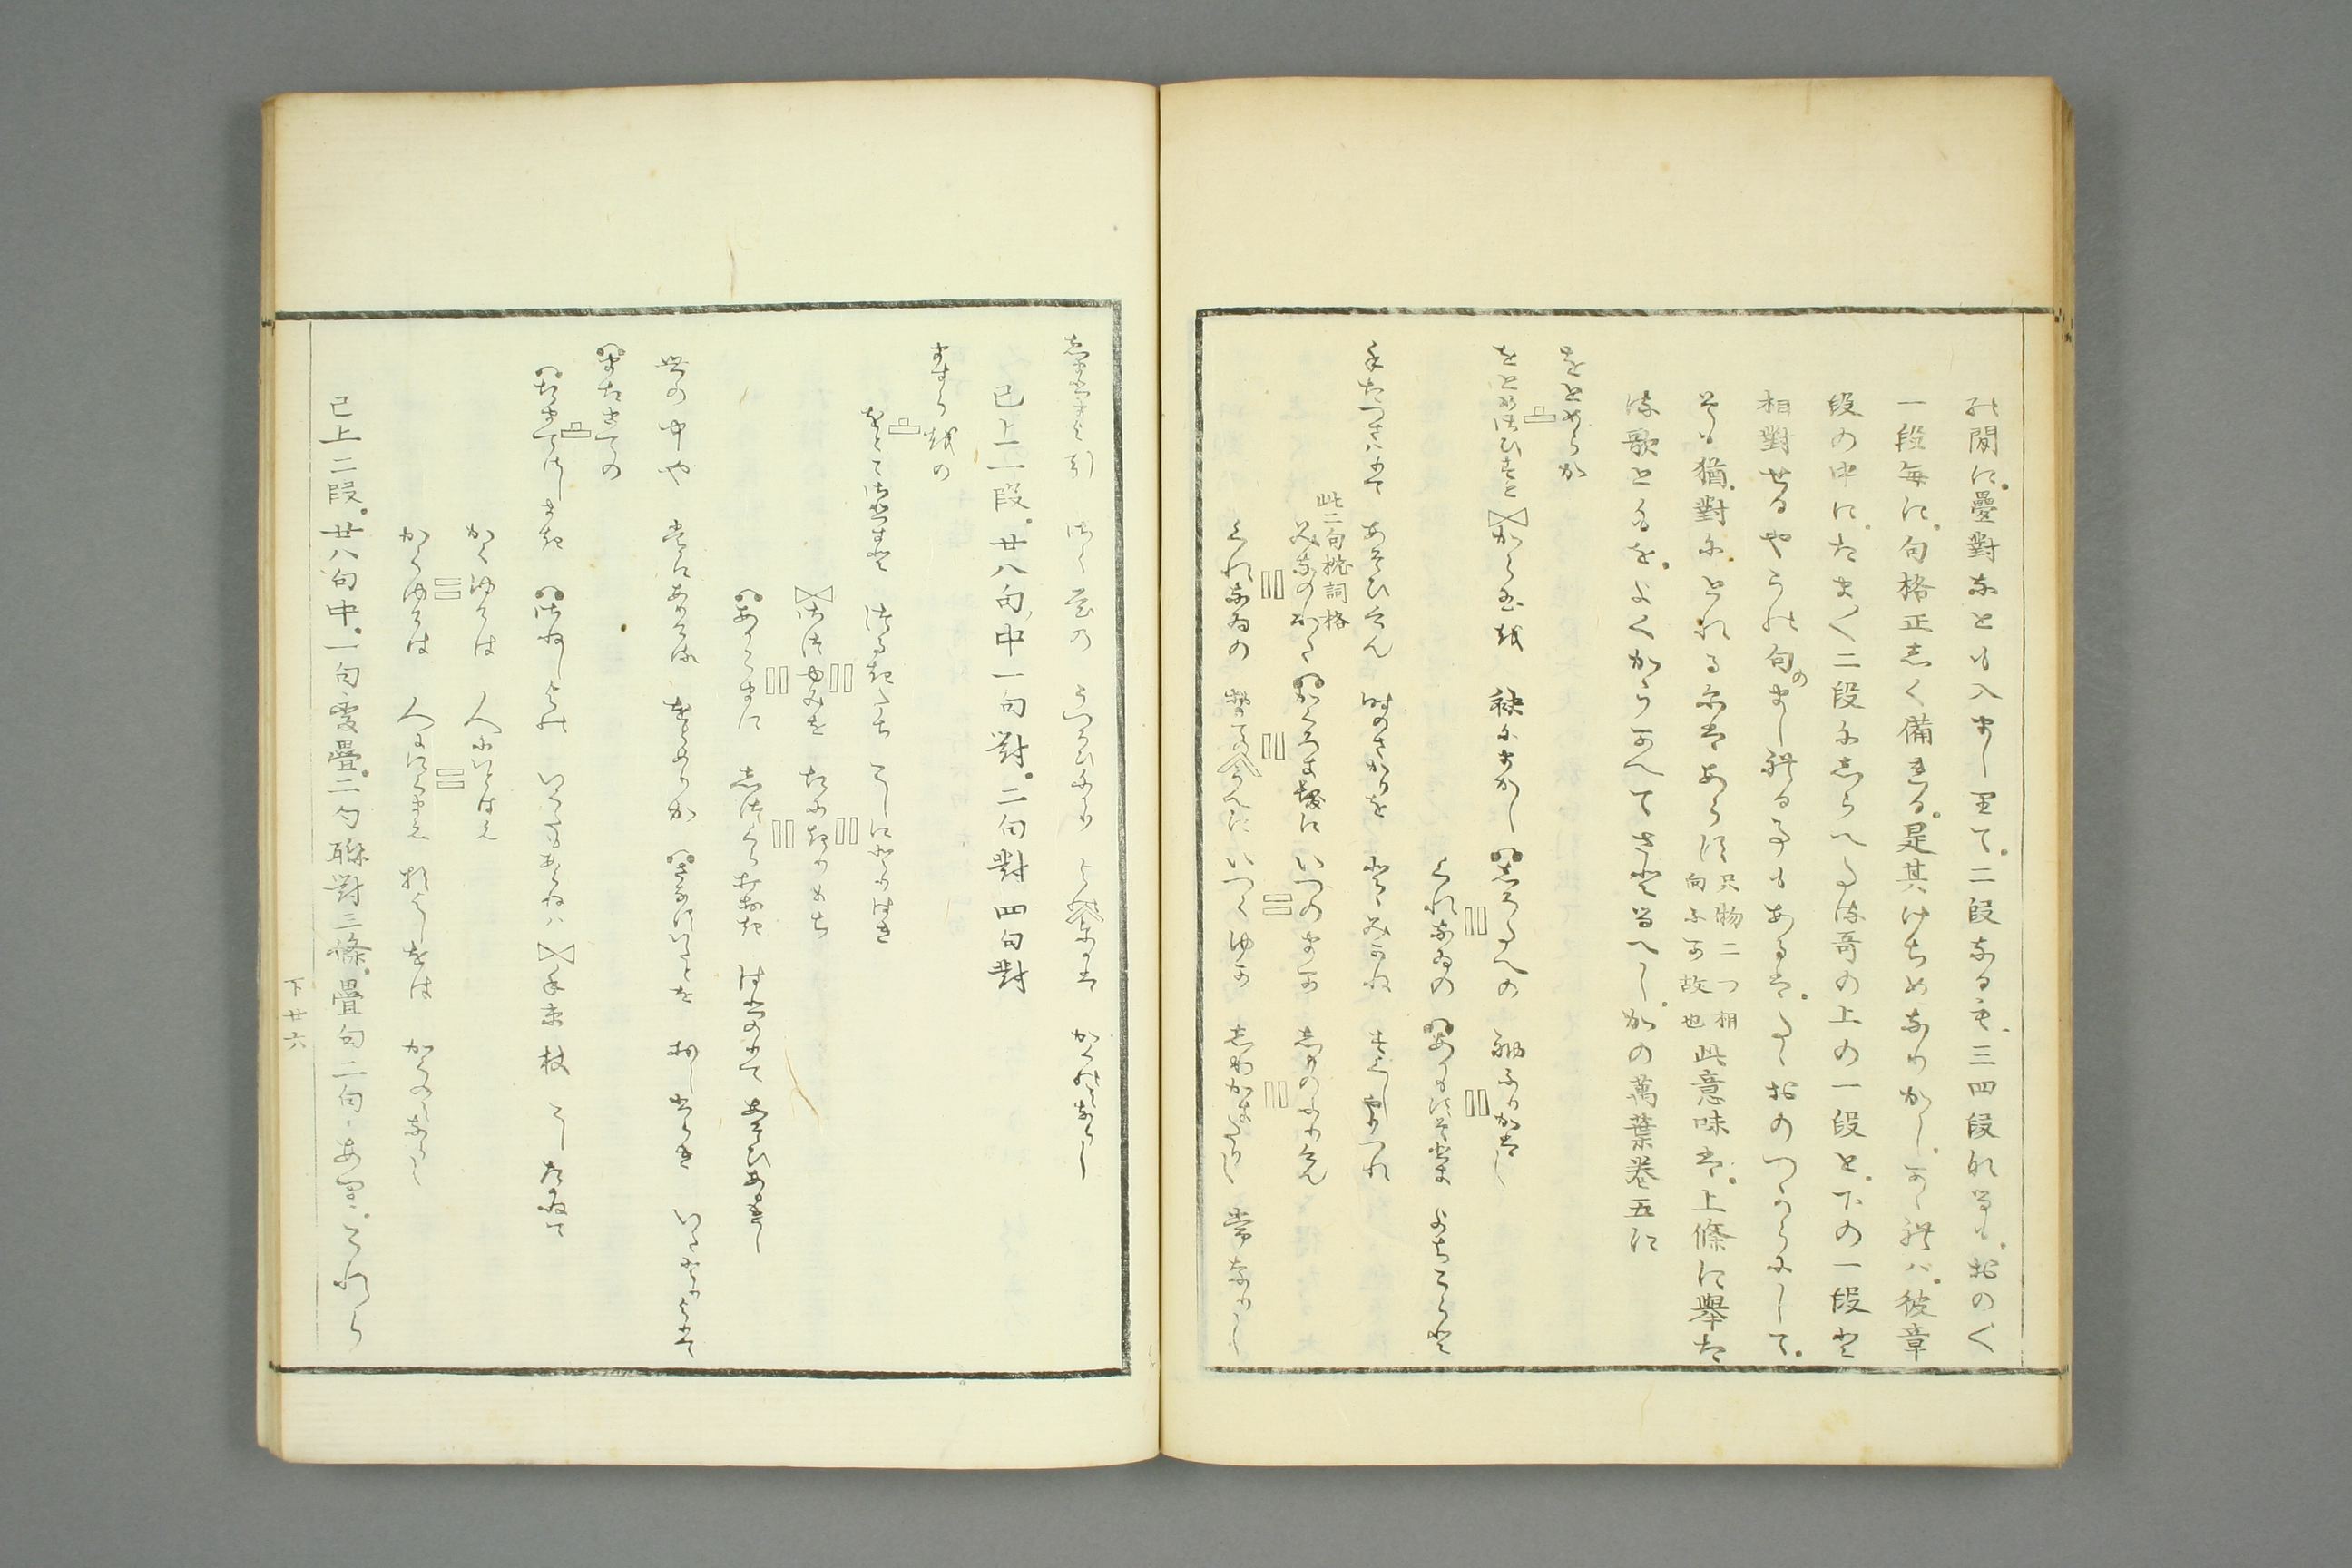 の間に疊對などもハまじりて二段なるも三四段なるもおのく
一段毎に句格正しく備はる是其けぢめなりかしかゝれバ彼章
段の中にたまく二段にしらへたる哥の上の一段と下の一段と
相對せるやうの句のまじれるもあるはたゝおのつからにして
そも猶對にとれるにはあらす只物二つ相向ふ可故也此意味は上條に擧た
る歌ともをよくかうかへてさとるへしかの萬葉巻五に
をとめらか
をとめさひすと からたまを 袂にまかし しろたへの 袖ふりかはし
くれなゐの あかもすそひき よちこらと
手たつさハりて あそひけん 時のさかりを とゝみかね すくしやりつれ
此二句枕詞格
みなのわた かくろき髪に いつのまか しものふりけん
くれなゐの いつくゆか しわかきたりし 常なりし
ゑまひまよ引 さく花の うつろひにけり かくのみならし
已上一段廿八句中一句對二句對四句對
ますら雄の
をとこさひすと つるきたち こしにとりはき
さつゆみを たにきりもち
あかこまに しつくらうちおき はひのりて あそひあるきし
世の中や 常にありける をとめらか さなすいたとを おしひらき いたとりよりて
またまての
たまてさしかへ さねしよの いくたもあらねハ 手束杖 こしにたかねて
かくゆけは 人にいとはえ
かくゆけは 人ににくまえ 老よしをは かくのみならし
已上二段廿八句中一句變疊二句聯對三條疊句二句あり これら
下廿六